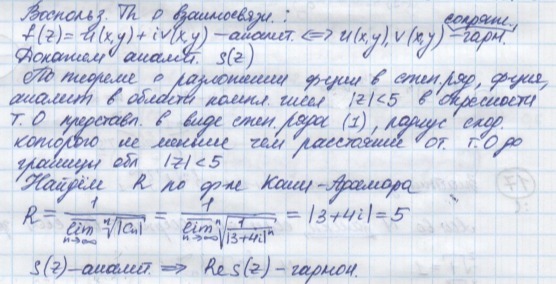 Воспольз. Th о взаимосвязи:
сопряж.
f(z)=u(x,y)+iv(x,y)-аналит. <=> u(x,y), v(x,y)-гарм.
Докажем аналит. S(z)
По теореме о разложении ф-ции в степ. ряд, ф-ция,
аналит в области компл. чисел |z|<5 в окресности
т. О представл. в виде степ. ряда (1), радиус сход.
которого не меньше чем расстояние от. т. О до
границы обл |z|<5
Найдём R по ф-ле Коши-Адамара
R = 1/(lim n→∞ ⁿ√|Cn|) = 1/(lim n→∞ ⁿ√(1/|3+4i|ⁿ)) = |3+4i| = 5
S(z)-аналит. => Re S(z)-гармон.